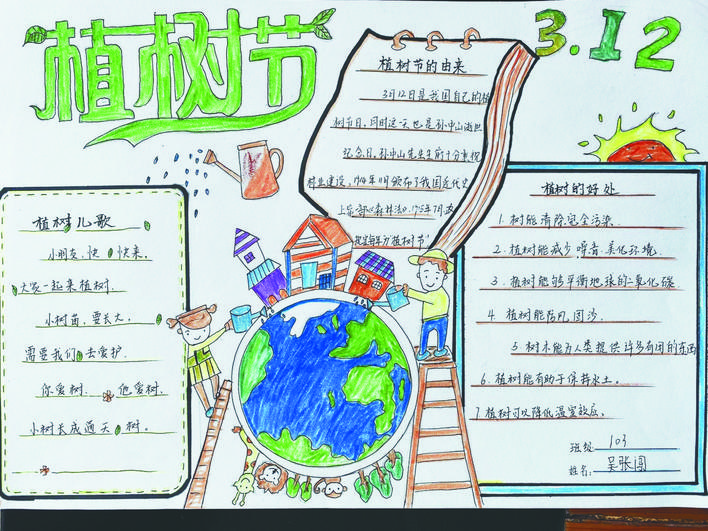 植树节
3.12
植树节的由来
3月12日是我国自己的植
树节日,同时这一天也是孙中山逝世
纪念日。孙中山先生生前十分重视
林业建设。
植树儿歌
小朋友,快快来,
大家一起来植树.
小树苗,要长大,
需要我们去爱护.
你爱树 他爱树.
小树长成通天树.
植树的好处
1.树能清除空气污染.
2.植树能减少噪音.美化环境.
3.植树能够平衡地球的二氧化碳.
4.植树能防风,固沙.
5.树木能为人类提供许多有用的东西
6.植树能有助于保持水土。
7.植树可以降低温室效应。
班级: 103
姓名: 吴张闯